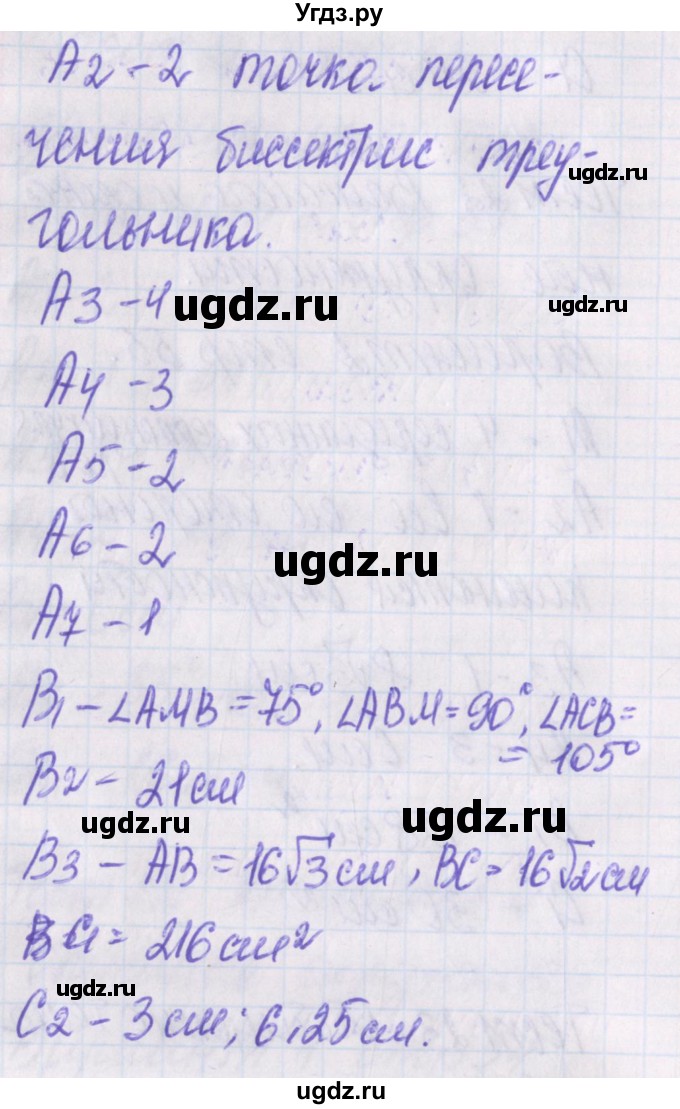 Угдз.ру
А2 - 2 точка пересе-
чения биссектрис треу-
ugdz.ru
гольника.
А3 - 4
ugdz.ru
ugdz.ru
А4 - 3
А5 - 2
А6 - 2
ugdz.ru
А7 - 1
В1 - ∠AMB = 75°, ∠ABM = 90°, ∠ACB =
= 105°
В2 - 21 см
ugdz.ru
ugdz.ru
В3 - AB = 16√3 см, BC = 16√2 см
С1 = 216 см²
ugdz.ru
С2 - 3 см; 6,25 см.
ugdz.ru